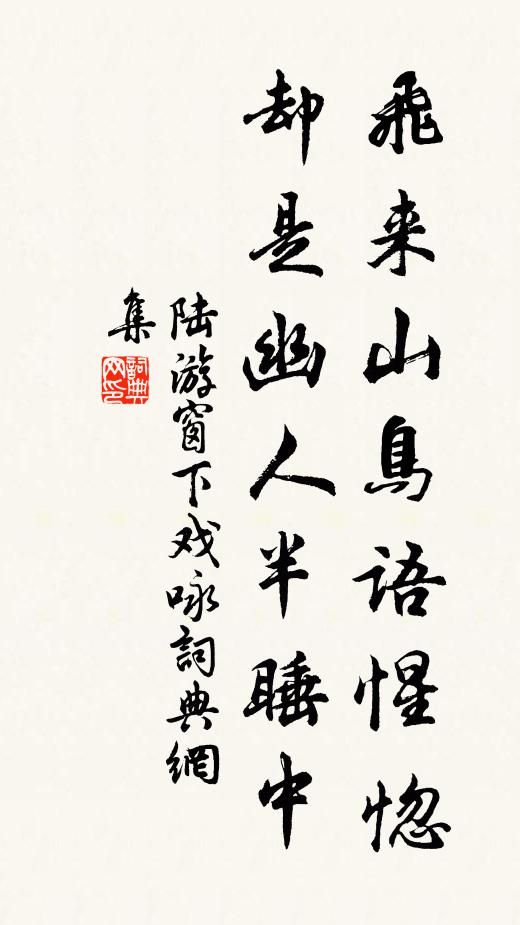 飛来山鳥語惺惚
却是幽人半睡中
陆游窗下戏咏詞典網
集
詞典
网印